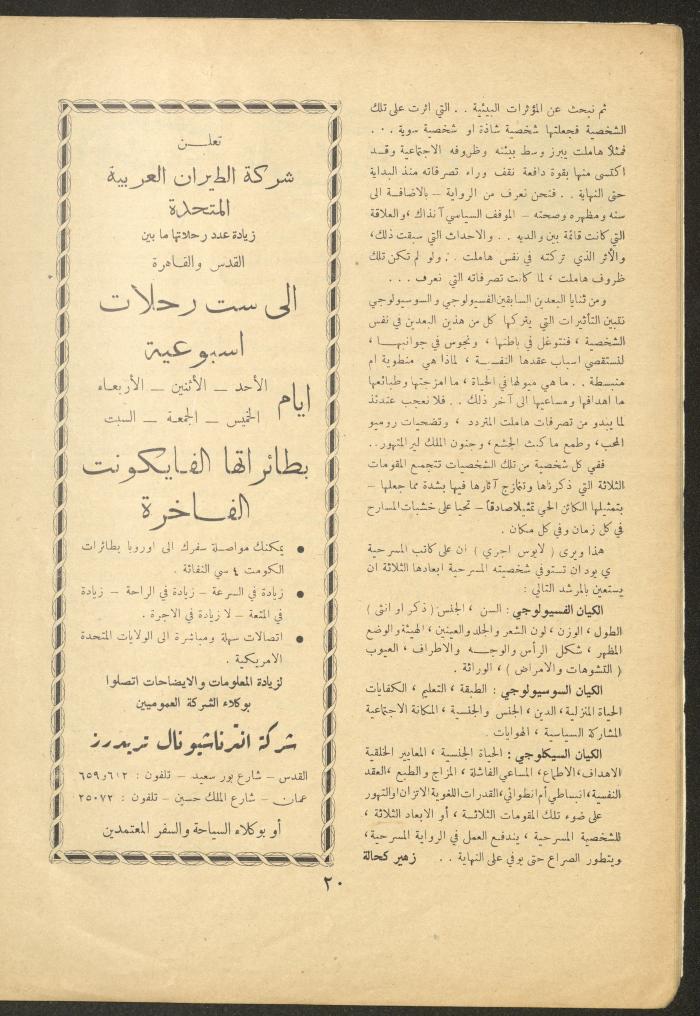 ثم نبحث عن المؤثرات البيئية . . التي اثرت على تلك
الشخصية فجعلتها شخصية شاذة او شخصية سوية . . .
فمثلاً هاملت يبرز وسط بيئته وظروفه الاجتماعية وقد
اكتسى منها بقوة دافعة نقف وراء تصرفاته منذ البداية
حتى النهاية . . فنحن نعرف من الرواية – بالاضافة الى
سنه ومظهره وصحته – الموقف السياسي آنذاك ، والعلاقة
التي كانت قائمة بين والديه . . والاحداث التي سبقت ذلك،
والأثر الذي تركته في نفس هاملت . . ولو لم تكن تلك
ظروف هاملت ، لما كانت تصرفاته التي نعرف . . .
ومن ثنايا البعدين السابقين الفسيولوجي والسوسيولوجي
نتبين التأثيرات التي يتركها كل من هذين البعدين في نفس
الشخصية ، فنتوغل في باطنها ، ونجوس في جوانبهـا ،
لنستقصي اسباب عقدها النفسية ، لماذا هي منطوية ام
منبسطة . . ما هي ميولها في الحياة ، ما امزجتها وطبائعها
ما اهدافها ومساعيها الى آخر ذلك . . فلا نعجب عندئذ
لما يبدو من تصرفات هاملت المتردد ، وتضحيات روميو
المحب، وطمع ماكبث الجشع، وجنون الملك لير المتهور . .
ففي كل شخصية من تلك الشخصيات تتجمع المقومات
الثلاثة التي ذكرناها وتتمازج آثارها فيها بشدة مما جعلها –
بتمثيلها الكائن الحي تمثيلاً صادقاً – تحيا على خشبات المسارح
في كل زمان وفي كل مكان .
هذا ويرى ( لايوس اجري ) ان على كاتب المسرحية
ي يود ان تستوفي شخصيته المسرحية ابعادها الثلاثة ان
يستعين بالمرشد التالي :
الكيان الفسيولوجي : السن ، الجنس ( ذكر او انثى )
الطول ، الوزن ، لون الشعر والجلد والعينين ، الهيئة والوضع
المظهر ، شكل الرأس والوجـه والاطراف ، العيوب
( التشوهات والامراض ) ، الوراثة .
الكيان السوسيولوجي : الطبقة ، التعليم ، الكفايات
الحياة المنزلية ، الدين ، الجنس والجنسية ، المكانة الاجتماعية
المشاركة السياسية ، الهوايات .
الكيان السيكلوجي : الحياة الجنسية ، المعايير الخلقية
الاهداف ، الاطماع ، المساعي الفاشلة ، المزاج والطبع ، العقد
النفسية، انبساطي أم انطوائي، القدرات اللغوية الاتزان او التهور
على ضوء تلك المقومات الثلاثة ، أو الابعاد الثلاثة ،
للشخصية المسرحية ، يندفع العمل في الرواية المسرحية ،
ويتطور الصراع حتى يوفي على النهاية . . زهير كحالة
تعلـــن
شركة الطيران العربية
المتحدة
زيادة عدد رحلاتها ما بين
القدس والقاهرة
الى ست رحلات
اسبوعية
ايام
الأحد – الأثنين – الأربعاء
الخميس – الجمعة – السبت
بطائراتها الفايكونت
الفاخرة
• يمكنك مواصلة سفرك الى اوروبا بطائرات
الكومت ٤ سي النفاثة .
• زيادة في السرعة – زيادة في الراحة – زيادة
في المتعة – لا زيادة في الاجرة .
• اتصالات سهلة ومباشرة الى الولايات المتحدة
الامريكية .
لزيادة المعلومات والايضاحات اتصلوا
بوكلاء الشركة العموميين
شركة انترناشيونال تريدرز
القدس – شارع بور سعيد – تلفون : ٦١٢ و ٦٥٩
عمان – شارع الملك حسين – تلفون : ٢٥٠٧٢
أو بوكلاء السياحة والسفر المعتمدين
٢٠